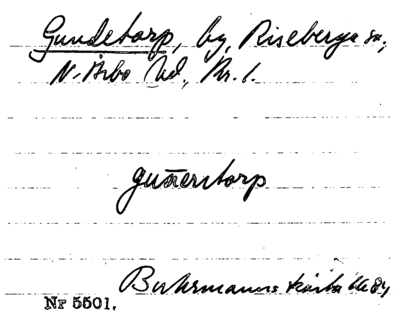 Gundetorp, by, Riseberga sn,
N. Åsbo hd, Kr. l.
gun̄erstorp
Buhrmanns karta 1684
Nr 5501.